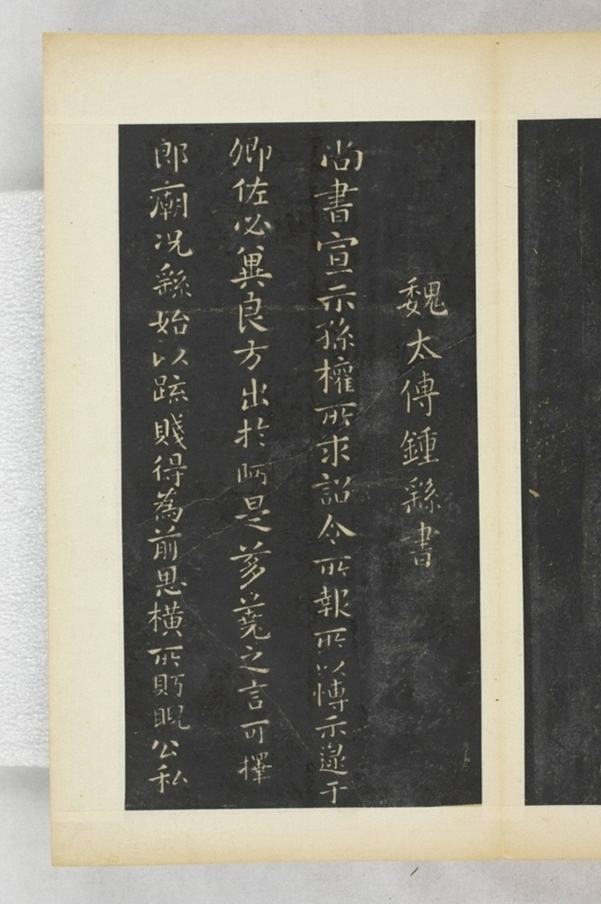 魏太傅鍾繇書
尚書宣示孫權所求詔令所報所以博示逮于
卿佐必冀良方出於阿是芻蕘之言可擇
郎廟況繇始以疏賤得為前恩橫所盱睨公私